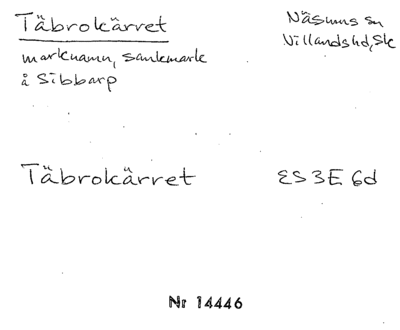 Täbrokärret
Näsums sn
Villandshd, Sk
marknamn, sankmark
å Sibbarp
Täbrokärret
ES 3E 6d
Nr 14446